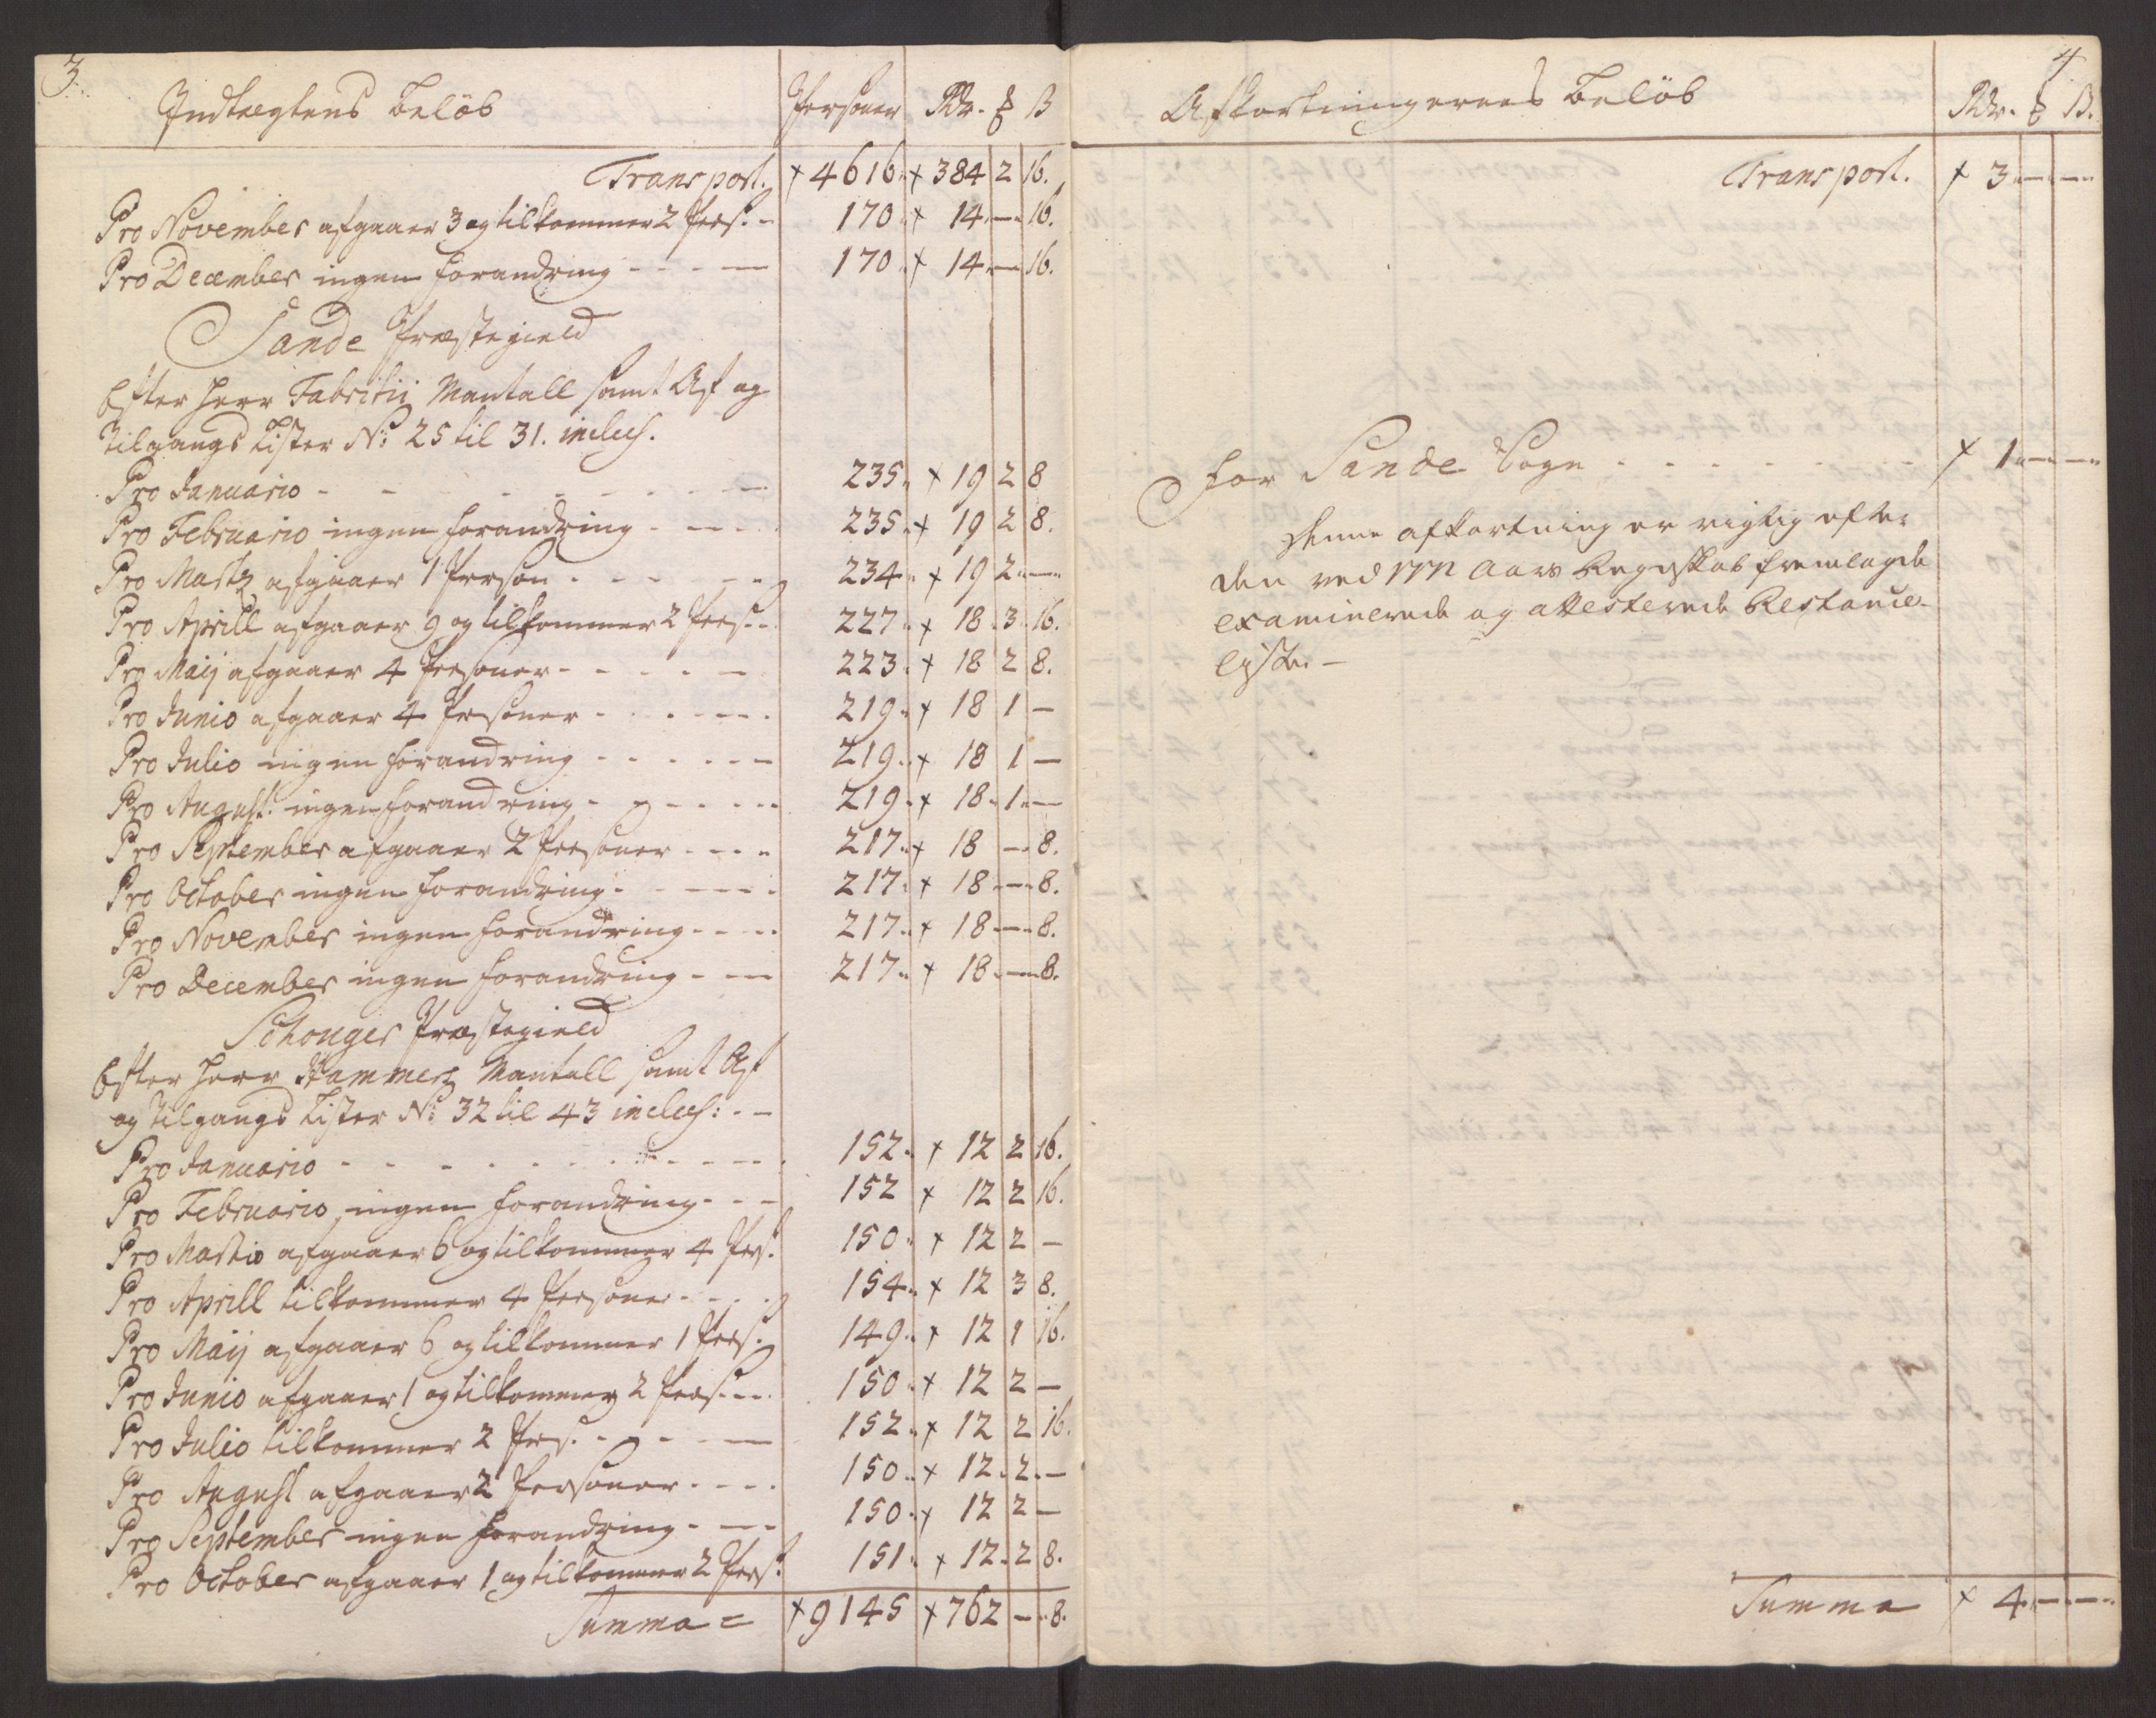 3.
Indtægtens Beløb Personer Rdr. ß
Transport. 4616 384 2 16.
Pro November afgaaer 3 og tilkommer 2 Pers. 170 14 — 16.
Pro December ingen forandring 170 14 — 16.
Sande Præstegield
Efter Herr Fabritij Mantall samt Af og
Tilgangs Lister No 25 til 31. inclus.
Pro Januario 235 19 2 8
Pro Februario ingen forandring 235 19 2 8.
Pro Marty afgaaer 1 Person 234 19 2 —
Pro Aprill afgaaer 9 og tilkommer 2 Pers. 227 18 3 16.
Pro Maij afgaaer 4 Personer 223 18 2 8.
Pro Junio afgaaer 4 Personer 219 18 1 —
Pro Julio ingen forandring 219 18 1 —
Pro August. ingen forandring 219 18 1 —
Pro September afgaaer 2 Personer 217 18 — 8.
Pro October ingen forandring 217 18 — 8.
Pro November ingen forandring 217 18 — 8.
Pro December ingen forandring 217 18 — 8.
Schouger Præstegield
Efter Herr Hammers Mantall samt Af
og Tilgangs Lister No 32 til 43 inclus:
Pro Januario 152 12 2 16.
Pro Februario ingen forandring 152 12 2 16.
Pro Martio afgaaer 6 og tilkommer 4 Pers. 150 12 2 —
Pro Aprill tilkommer 4 Personer 154 12 3 8.
Pro Maij afgaaer 6 og tilkommer 1 Pers. 149 12 1 16.
Pro Junio afgaaer 1 og tilkommer 2 Pers. 150 12 2 —
Pro Julio tilkommer 2 Pers. 152 12 2 16.
Pro August afgaaer 2 Personer 150 12 2 —
Pro September ingen forandring 150 12 2 —
Pro October afgaaer 1 og tilkommer 2 Pers. 151 12 2 8.
Summa = 9145 762 — 8.
4
Afkortningernes Beløb Rdr. ß.
Transport. 3 — —
for Sande Sogn 1 — —
Denne afkortning er rigtig efter
den ved Aars Regnskab fremlagde
examinerede og attesterede Restance
Liste —
Summa 4 — —